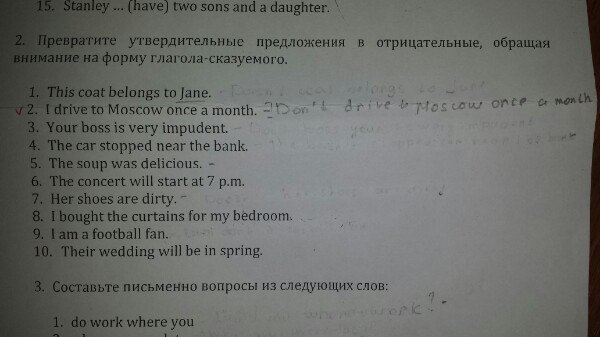 15. Stanley ... (have) two sons and a daughter.
2. Превратите утвердительные предложения в отрицательные, обращая
внимание на форму глагола-сказуемого.
1. This coat belongs to Jane. -
✓ 2. I drive to Moscow once a month. - I Don't drive to Moscow once a month
3. Your boss is very impudent. -
4. The car stopped near the bank.
5. The soup was delicious. -
6. The concert will start at 7 p.m.
7. Her shoes are dirty. -
8. I bought the curtains for my bedroom.
9. I am a football fan.
10. Their wedding will be in spring.
3. Составьте письменно вопросы из следующих слов:
1. do work where you work? -